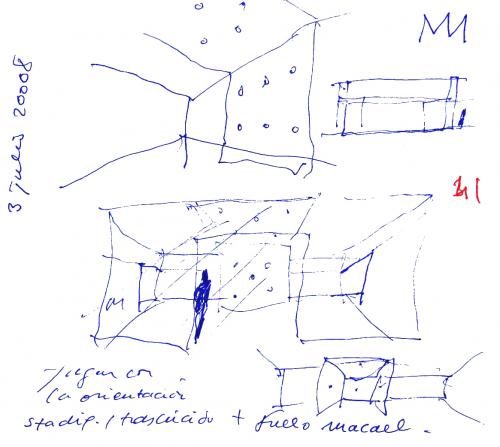 3 julio 20008
41
Jugar con
la orientación
stadip. / traslúcido + suelo macael.